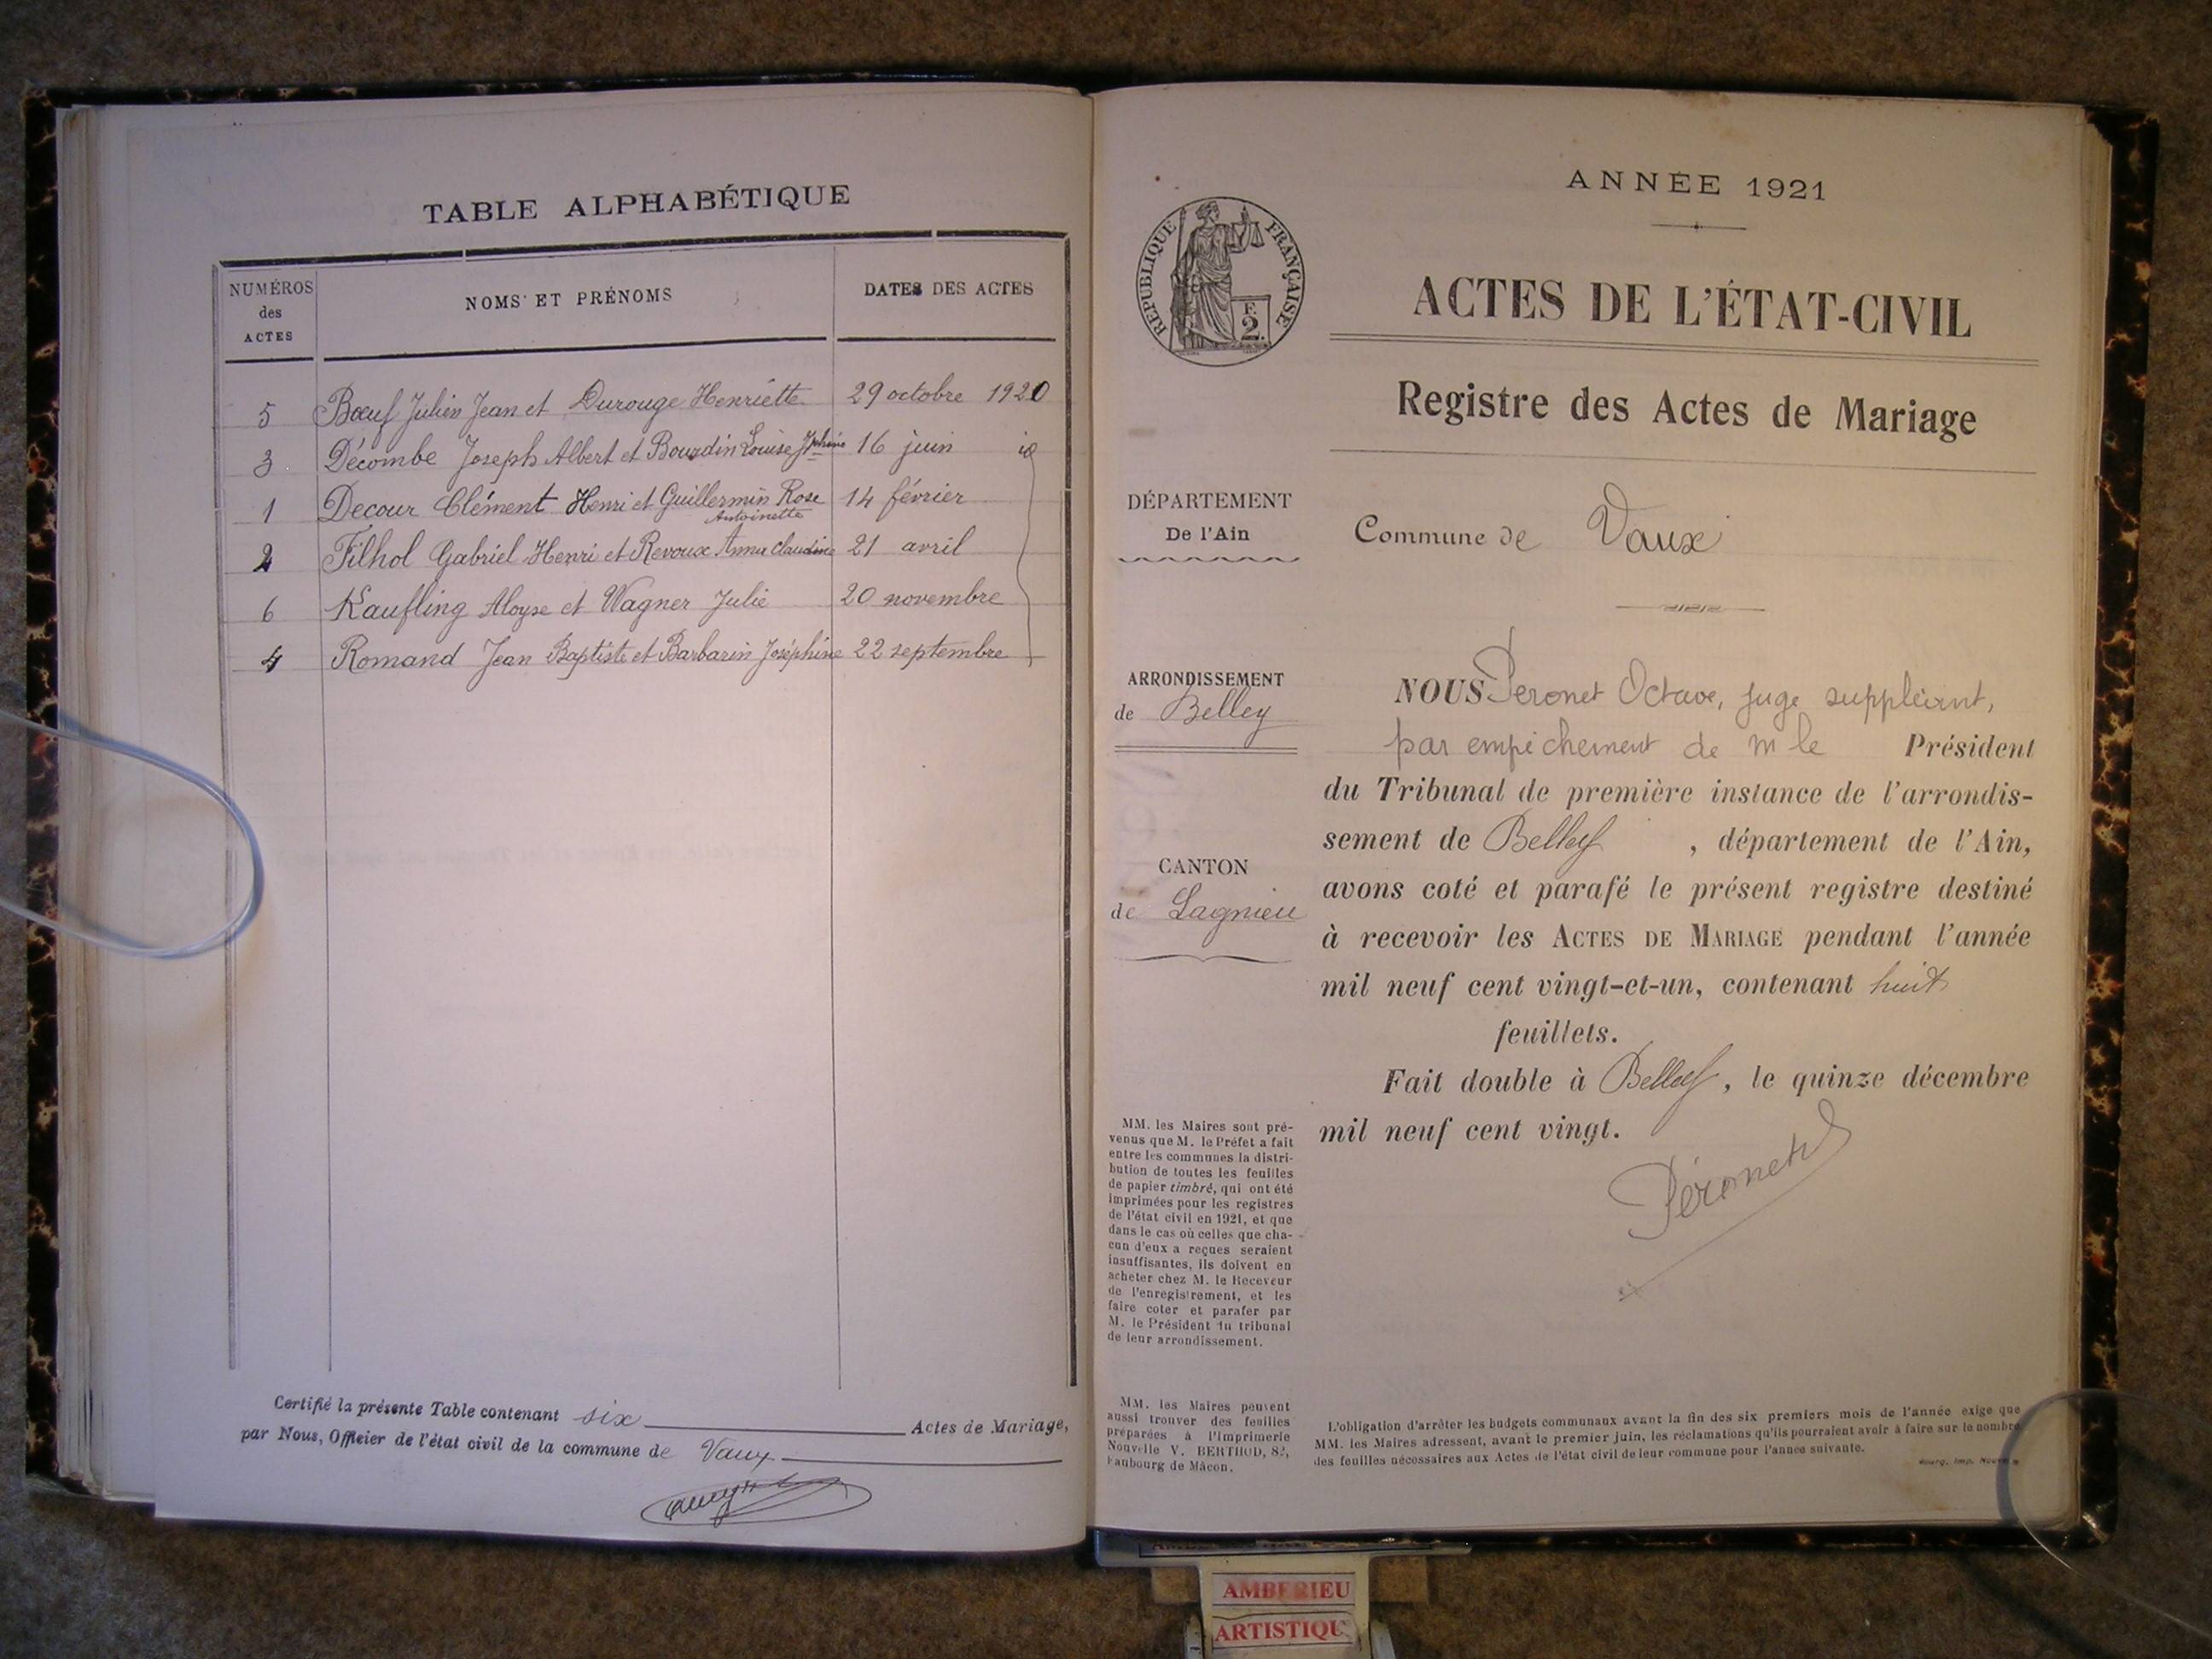 TABLE ALPHABÉTIQUE
NUMÉROS
des
ACTES
NOMS ET PRÉNOMS
DATES DES ACTES
5 Bœuf Julien Jean et Durouge Henriette 29 octobre 1920
3 Décombe Joseph Albert et Bourdin Louise Jphine 16 juin id
1 Decour Clément Henri et Guillermin Rose 14 février
Antoinette
2 Filhol Gabriel Henri et Revoux Anna Claudine 21 avril
6 Kaufling Aloyse et Wagner Julie 20 novembre
4 Romand Jean Baptiste et Barbarin Joséphine 22 septembre
Certifié la présente Table contenant six Actes de Mariage,
par Nous, Officier de l'état civil de la commune de Vaux
ANNÉE 1921
RÉPUBLIQUE FRANÇAISE
F.
2.
ACTES DE L'ÉTAT-CIVIL
Registre des Actes de Mariage
DÉPARTEMENT
De l'Ain
Commune de Vaux
ARRONDISSEMENT
de Belley
CANTON
de Lagnieu
NOUS Peronet Octave, juge suppléant,
par empêchement de M le Président
du Tribunal de première instance de l'arrondis-
sement de Belley , département de l'Ain,
avons coté et parafé le présent registre destiné
à recevoir les ACTES DE MARIAGE pendant l'année
mil neuf cent vingt-et-un, contenant huit
feuillets.
Fait double à Belley, le quinze décembre
mil neuf cent vingt.
Péronet
MM. les Maires sont pré-
venus que M. le Préfet a fait
entre les communes la distri-
bution de toutes les feuilles
de papier timbré, qui ont été
imprimées pour les registres
de l'état civil en 1921, et que
dans le cas où celles que cha-
cun d'eux a reçues seraient
insuffisantes, ils doivent en
acheter chez M. le Receveur
de l'enregistrement, et les
faire coter et parafer par
M. le Président du tribunal
de leur arrondissement.
MM. les Maires peuvent
aussi trouver des feuilles
préparées à l'Imprimerie
Nouvelle V. BERTHOD, 82,
Faubourg de Mâcon.
L'obligation d'arrêter les budgets communaux avant la fin des six premiers mois de l'année exige que
MM. les Maires adressent, avant le premier juin, les réclamations qu'ils pourraient avoir à faire sur le nombre
des feuilles nécessaires aux Actes de l'état civil de leur commune pour l'année suivante.
Bourg, Imp. Nouv
AMBERIEU
ARTISTIQU